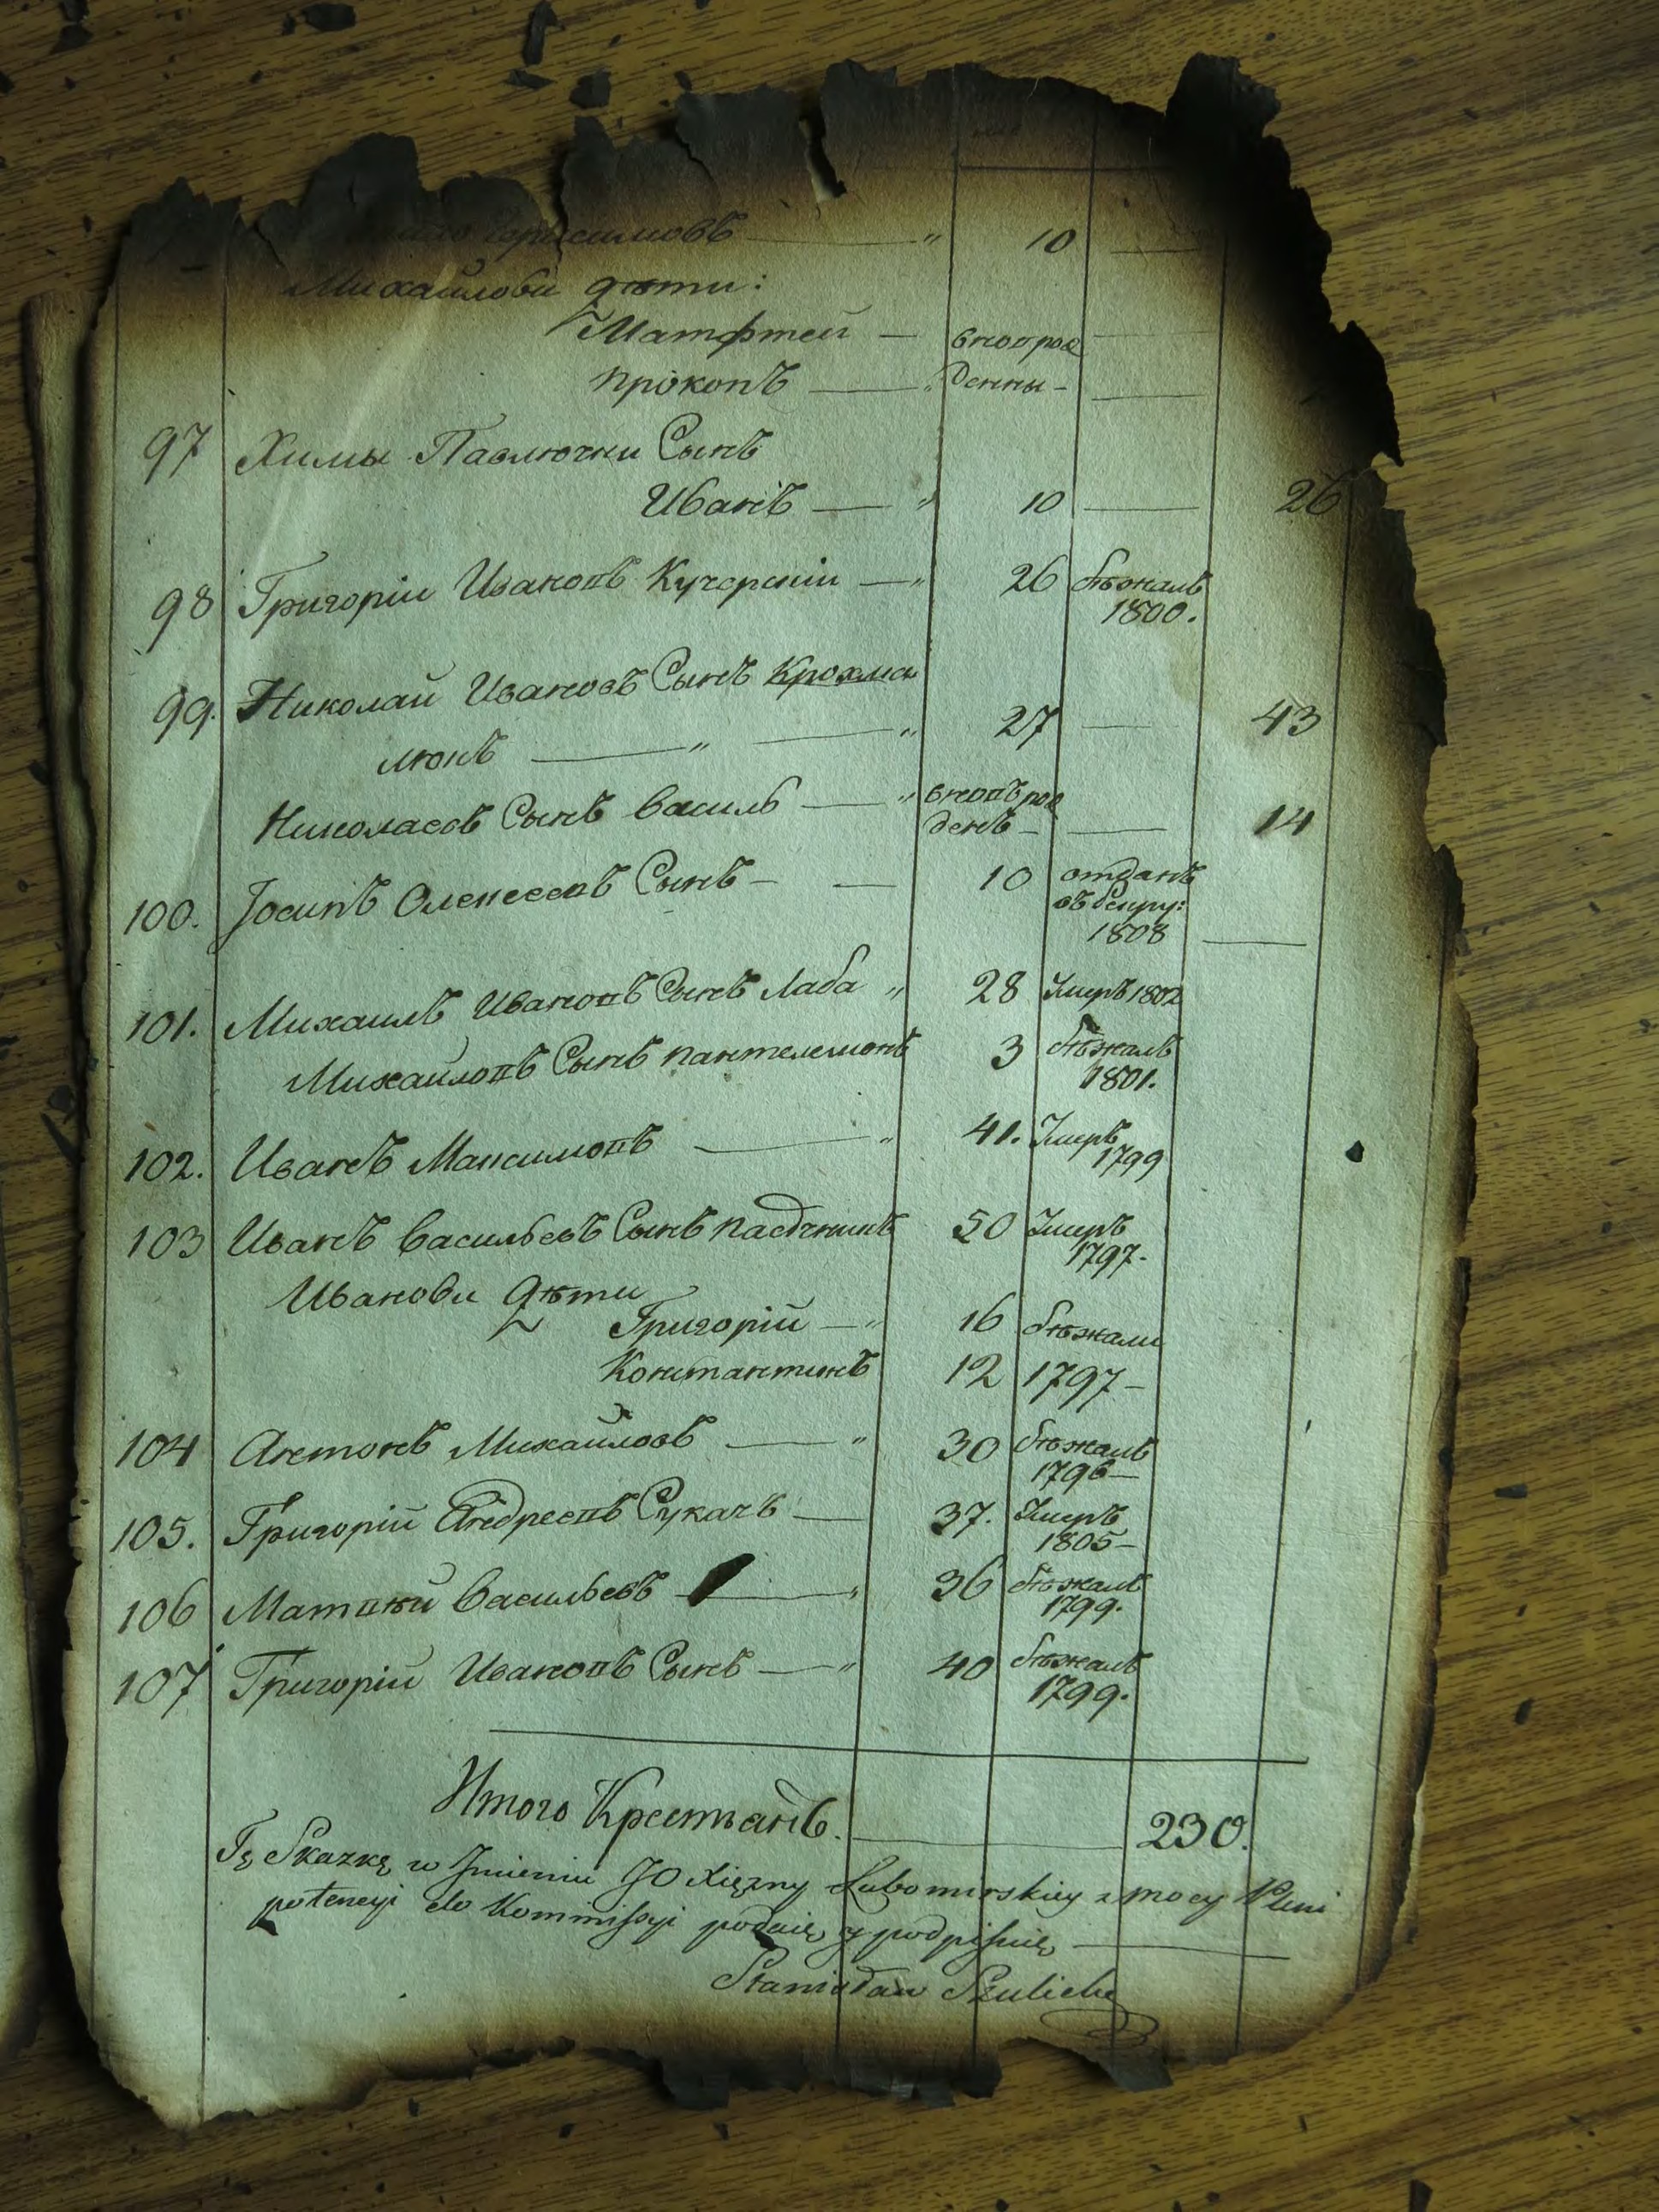 Герасимовъ — " 10 —
Михайлови дѣти:
Матфтей — вноврож —
Прокопъ — " денны — —
97 Химы Павлючки Сынъ
Иванъ — " 10 — 26
98 Григоріи Ивановъ Кучерскіи — " 26 бѣжалъ
1800.
99. Николай Ивановъ Сынъ Крохма
люкъ — " — " 27 — 43
Николаевъ Сынъ Василь — " вновърож
денъ — — 14
100. Іосипъ Олексеевъ Сынъ — — 10 отданъ
въ рекру:
1808 —
101. Михаилъ Ивановъ Сынъ Лаба " 28 Умеръ 1802
Михайловъ Сынъ Пантелемонъ 3 бѣжалъ
1801.
102. Иванъ Максимовъ — " 41. Умеръ
1799
103 Иванъ Васильевъ Сынъ Пасѣчникъ 50 Умеръ
1797.
Иванови Дѣти
Григорій — " 16 бѣжали
Константинъ 12 1797 —
104 Антонъ Михайловъ — " 30 бѣжалъ
1796 —
105. Григорій Андреевъ Сукачъ — 37. Умеръ
1805 —
106 Матвѣй Васильевъ — " 36 бѣжалъ
1799.
107 Григорій Ивановъ Сынъ — " 40 бѣжалъ
1799.
Итого Крестьянъ. — 230.
Tę Skazkę w Jmieniu JO Xiężny Lubomirskiey z mocy Pleni
potencyi do Kommissyi podaię y podpisuię —
Stanisław Szulicki